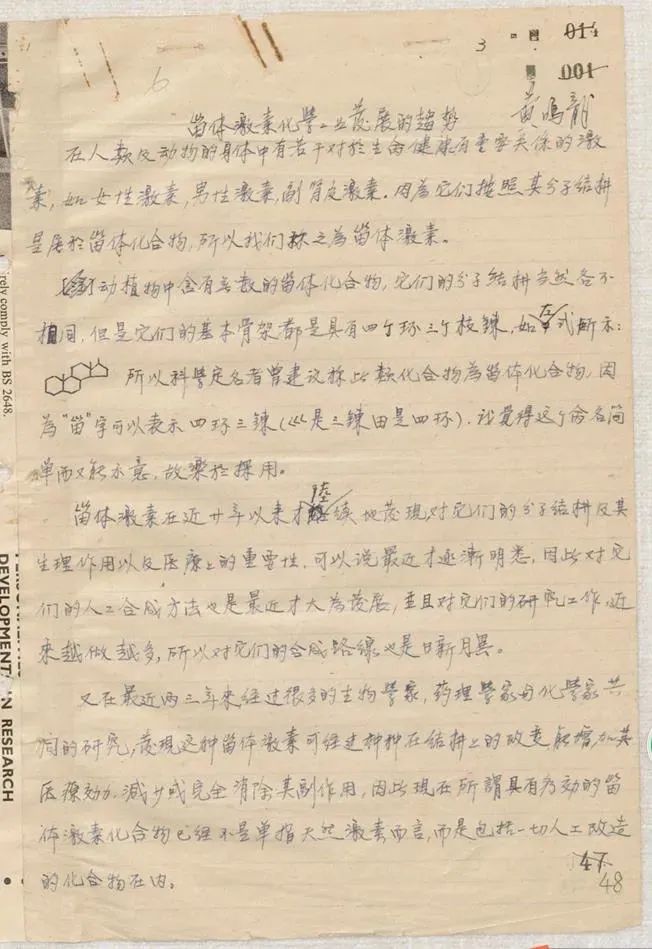 3
011
001
6
黄鳴龍
甾体激素化學工业发展的趋势
在人類及动物的身体中有若干对於生命健康有重要关係的激
素，如女性激素，男性激素，副腎皮激素。因為它们按照其分子结構
是属於甾体化合物，所以我们称之為甾体激素。
动植物中含有无数的甾体化合物，它们的分子结構当然各不
相同，但是它们的基本骨架都是具有四个环三个枝鍊，如左式所示：
所以科學定名者曾建议採此類化合物為甾体化合物，因
為“甾”字可以表示四环三鍊(巛是三鍊田是四环)，我觉得这个命名简
单而又能示意，故樂於採用。
甾体激素在近廿年以来才陸续地发現，对它们的分子结構及其
生理作用以及医療上的重要性，可以说最近才逐漸明悉，因此对它
们的人工合成方法也是最近才大為发展，並且对它们的研究工作，近
来越做越多，所以对它们的合成路線也是日新月異。
又在最近两三年来经过很多的生物學家，药理學家与化學家共
同的研究，发現这种甾体激素可经过种种在结構上的改变，能增加其
医療効力，減少或完全消除其副作用，因此現在所謂具有为効的甾
体激素化合物已经不是单指天然激素而言，而是包括一切人工改造
的化合物在内。
47
48
rely comply with BS 2648.
DEVELOPMENT IN RESEARCH